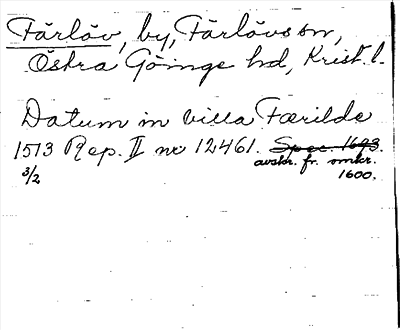 Färlöv, by, Färlövs sn,
Östra Göinge hd, Krist. l.
Datum in villa Færilde
1513 Rep. II nr 12461. Spec. 1693.
3/2 avskr. fr. omkr.
1600.